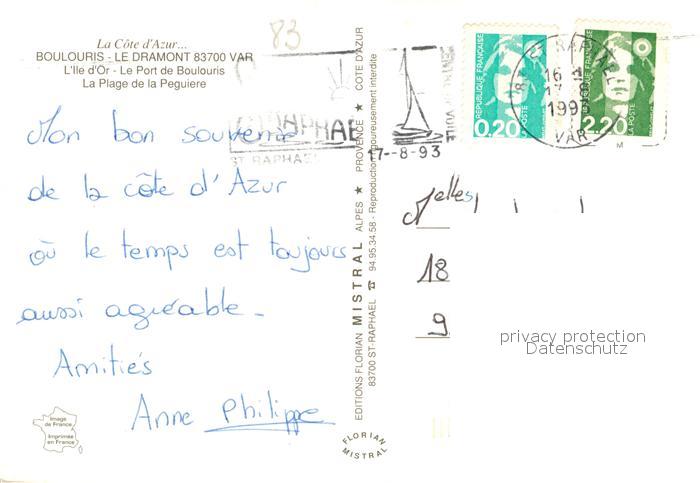 83
La Côte d'Azur...
BOULOURIS - LE DRAMONT 83700 VAR
L'Ile d'Or - Le Port de Boulouris
La Plage de la Peguiere
Mon bon souvenir
de la côte d'Azur
où le temps est toujours
aussi agréable -
Amitiés
Anne Philippe
Image
de France
Imprimée
en France
EDITIONS FLORIAN MISTRAL ALPES ★ PROVENCE ★ COTE D'AZUR
83700 ST-RAPHAEL ☎ 94.95.34.58 - Reproduction rigoureusement interdite
FLORIAN
MISTRAL
ST RAPHAEL
17-8-93
REPUBLIQUE FRANÇAISE
0,20
2,20
LA POSTE
16
VAR
Melles
18
9
privacy protection
Datenschutz